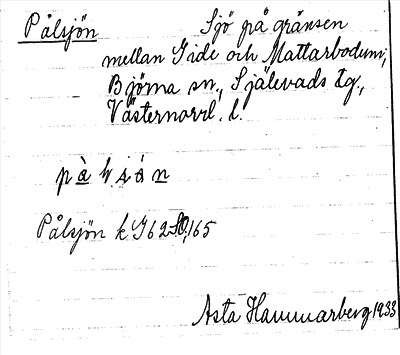 Pålsjön Sjö på gränsen
mellan Gide och Mattarbodum,
Björna sn., Själevads tg.,
Västernorrl. l.
Pålsjön k J62 SO, 165
Asta Hammarberg 1933